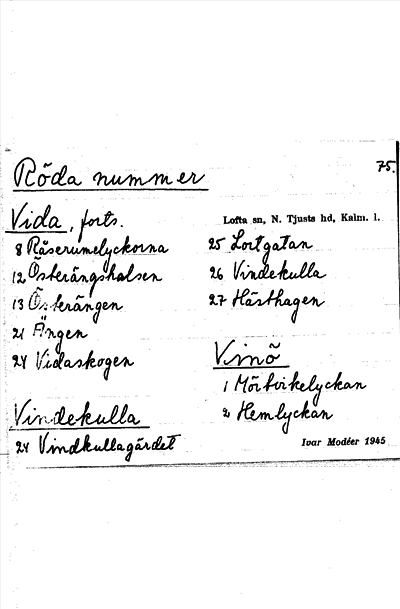 Röda nummer
75.
Vida, forts.
Lofta sn, N. Tjusts hd, Kalm. l.
8 Råserumelyckorna
12 Österängshalsen
13 Österängen
21 Ängen
24 Vidaskogen
Vindekulla
24 Vindkullagärdet
25 Lortgatan
26 Vindekulla
27 Hästhagen
Vinö
1 Mörtvikelyckan
2 Hemlyckan
Ivar Modéer 1945